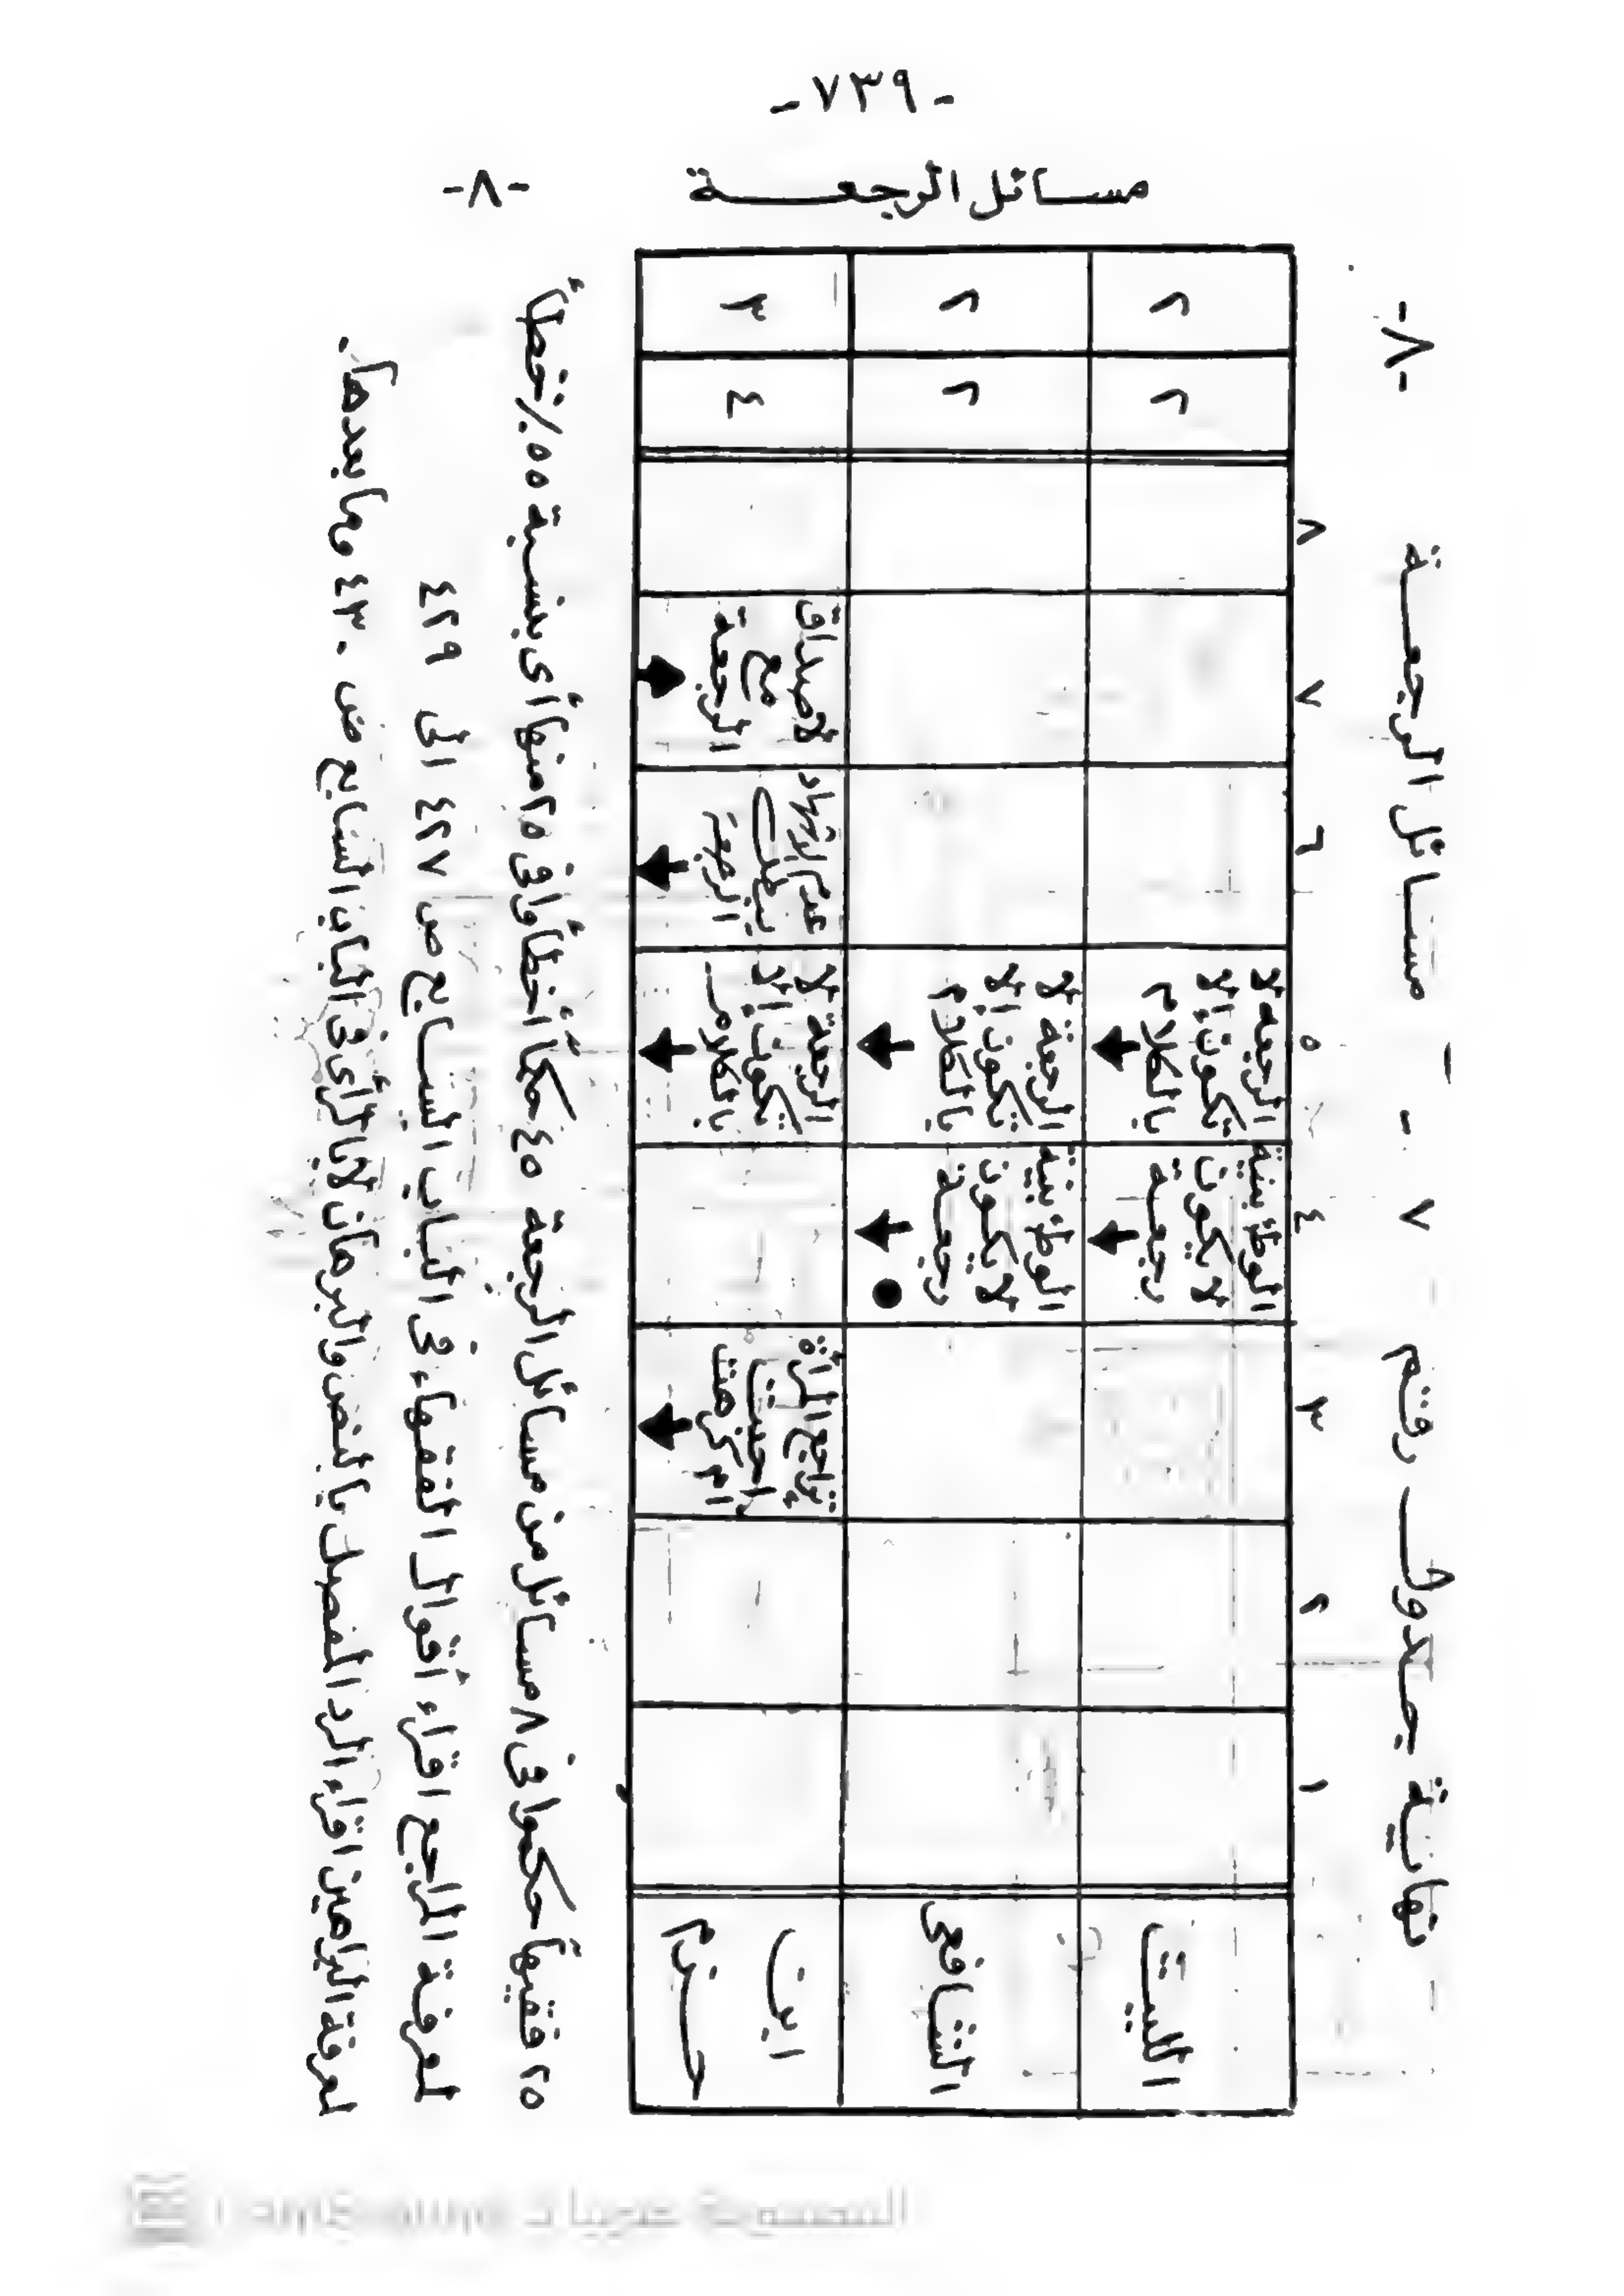 -٧٣٩-
مسائل الرجعة -٨-
نهاية جدول رقم ٧ - - مسائل الرجعة -٨-
١ ٢ ٣ ٤ ٥ ٦ ٧ ٨
الليث
الوطء بنية
لا يكون
رجعة
الرجعة لا
تكون إلا
بالكلام
٢
٢
الشافعى
الوطء بنية
لا يكون
رجعة
الرجعة لا
تكون إلا
بالكلام
٢
٢
ابن
حزم
تراجع المرأة
أحبت
أم كرهت
الرجعة لا
تكون إلا
بالكلام
عدم الإشهاد
يبطل
الرجعة
لا صداق
مع
الرجعة
٤
٣
٢٥ فقيهاً حكموا فى ٨ مسائل من مسائل الرجعة ٤٥ حكماً أخطأوا فى ٢٥ منها أى بنسبة ٥٥٪ خطأ
لمعرفة المراجع اقراء أقوال الفقهاء فى الباب السابع ص ٤٢٧ الى ٤٢٩
لمعرفة البراهين اقراء الرد المفصل بالنص والبرهان لأيا الرأى فى الباب السابع ص ٤٣٠ وما بعدها.